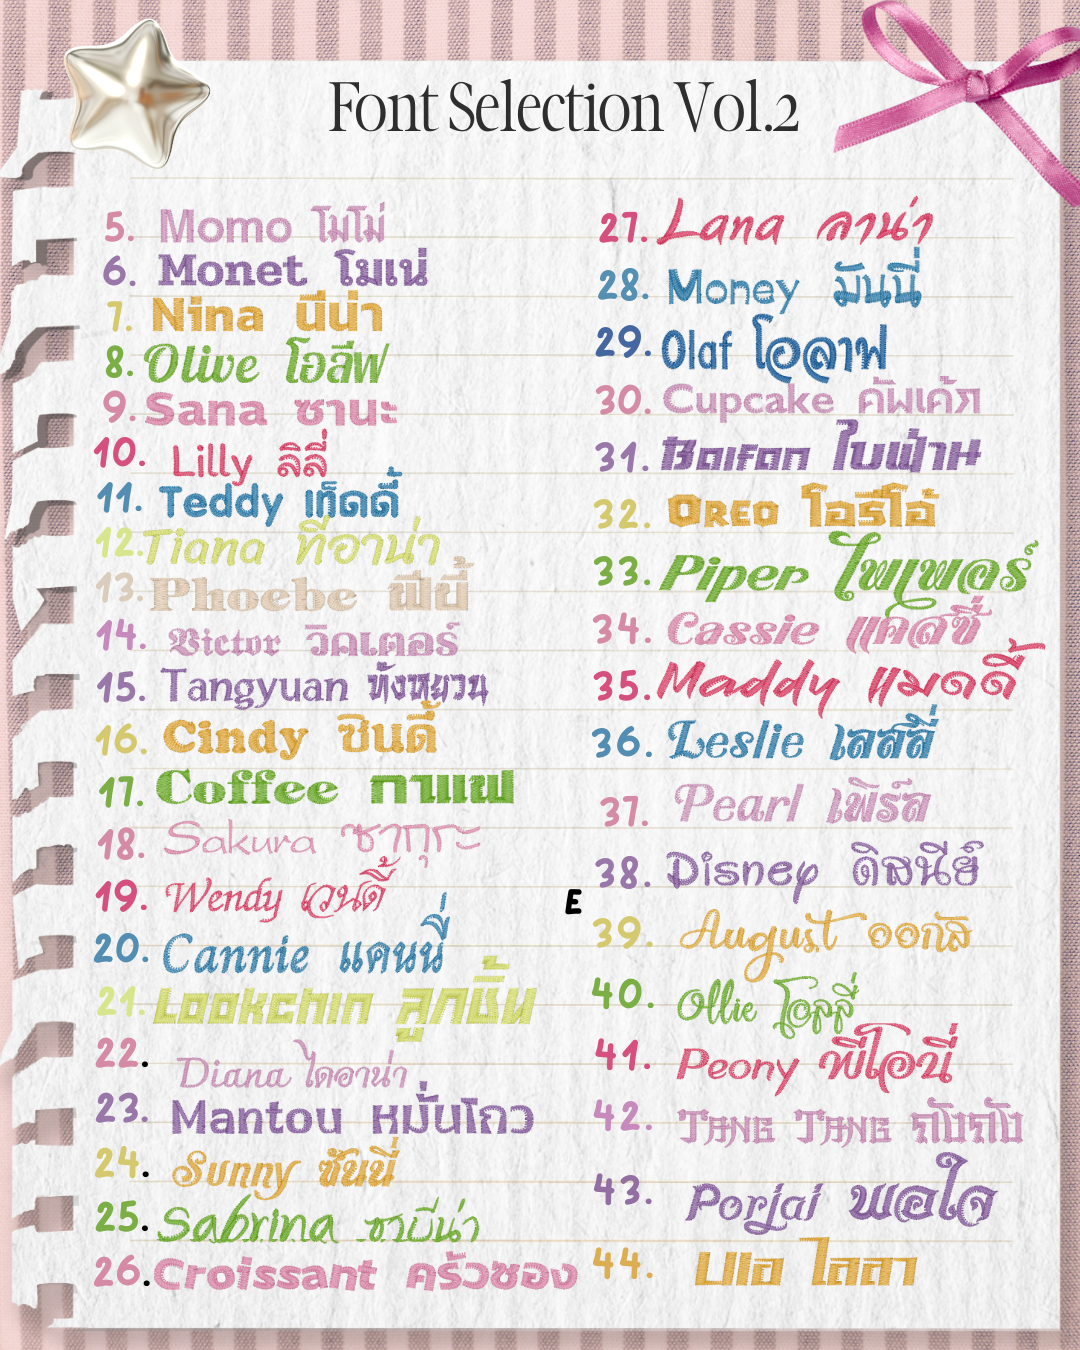 Font Selection Vol.2
5. Momo โมโม่
6. Monet โมเน่
7. Nina นีน่า
8. Olive โอลีฟ
9. Sana ซานะ
10. Lilly ลิลี่
11. Teddy เท็ดดี้
12. Tiana ทีอาน่า
13. Phoebe ฟีบี้
14. Victor วิคเตอร์
15. Tangyuan ทังหยวน
16. Cindy ซินดี้
17. Coffee กาแฟ
18. Sakura ซากุระ
19. Wendy เวนดี้
20. Cannie แคนนี่
21. Lookchin ลูกชิ้น
22. Diana ไดอาน่า
23. Mantou หมั่นโถว
24. Sunny ซันนี่
25. Sabrina ซาบีน่า
26. Croissant ครัวซอง
27. Lana ลาน่า
28. Money มันนี่
29. Olaf โอลาฟ
30. Cupcake คัพเค้ก
31. Baifan ใบฟ่าน
32. Oreo โอรีโอ้
33. Piper ไพเพอร์
34. Cassie แคสซี่
35. Maddy แมดดี้
36. Leslie เลสลี่
37. Pearl เพิร์ล
38. Disney ดิสนีย์
E
39. August ออกัส
40. Ollie โอลลี่
41. Peony พีโอนี่
42. Tang Tang ถังถัง
43. Porjai พอใจ
44. Lila ไลลา